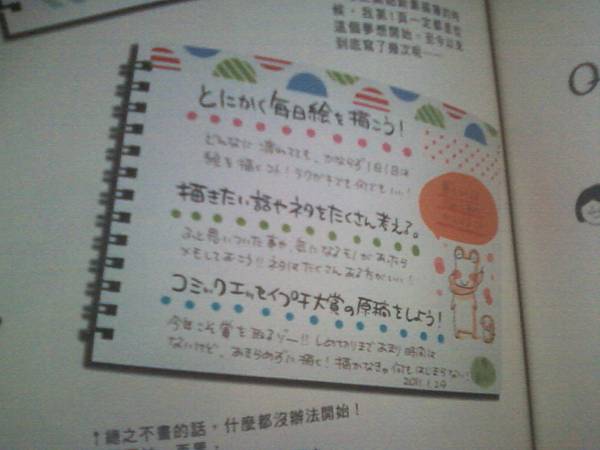 候，我第1頁一定都是從
這個夢想開始。至今以來
到底寫了幾次呢……
とにかく毎日絵を描こう！
どんなに疲れてても、かならず1日1回は
絵を描くコト！ラクガキでも何でもいい！
描きたい話やネタをたくさん考える。
ふと思いついた事や、気になるモノがあったら
メモしておこう!!ネタはたくさんある方がいい！
コミックエッセイプチ大賞の原稿をしよう！
今年こそ賞を取るゾー!!しめきりまであまり時間は
ないけど、あきらめずに描く！描かなきゃ何もはじまらない！
2011.1.29
↑總之不畫的話，什麼都沒辦法開始！